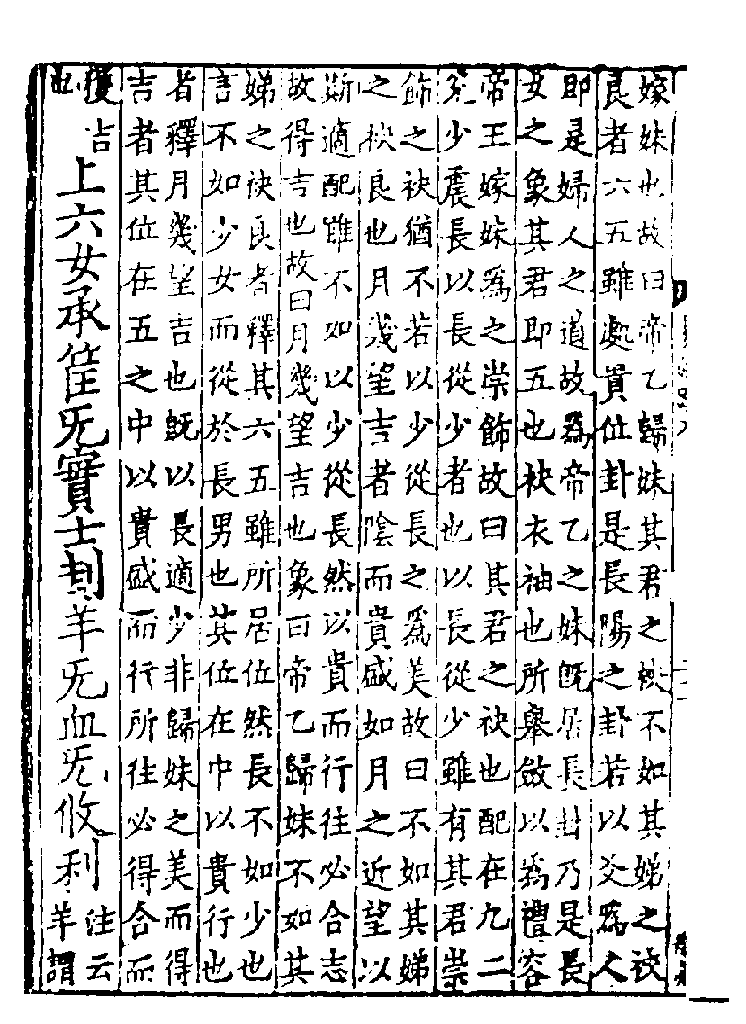 嫁妹也故曰帝乙歸妹其君之袂不如其娣之袂
良者六五雖處貴位卦是長陽之卦若以爻爲人
即是婦人之道故爲帝乙之妹既居長卦乃是長
女之象其君即五也袂衣袖也所舉斂以爲禮容
帝王嫁妹爲之崇飾故曰其君之袂也配在九二
兌少震長以長從少者也以長從少雖有其君崇
飾之袂猶不若以少從長之爲美故曰不如其娣
之袂良也月幾望吉者陰而貴盛如月之近望以
斯適配雖不如以少從長然以貴而行往必合志
故得吉也故曰月幾望吉也象曰帝乙歸妹不如其
娣之袂良者釋其六五雖所居位然長不如少也
言不如少女而從於長男也其位在中以貴行也
者釋月幾望吉也既以長適少非歸妹之美而得
吉者其位在五之中以貴盛而行所往必得合而
獲吉
也
上六女承筐无實士刲羊无血无攸利
注云
羊謂